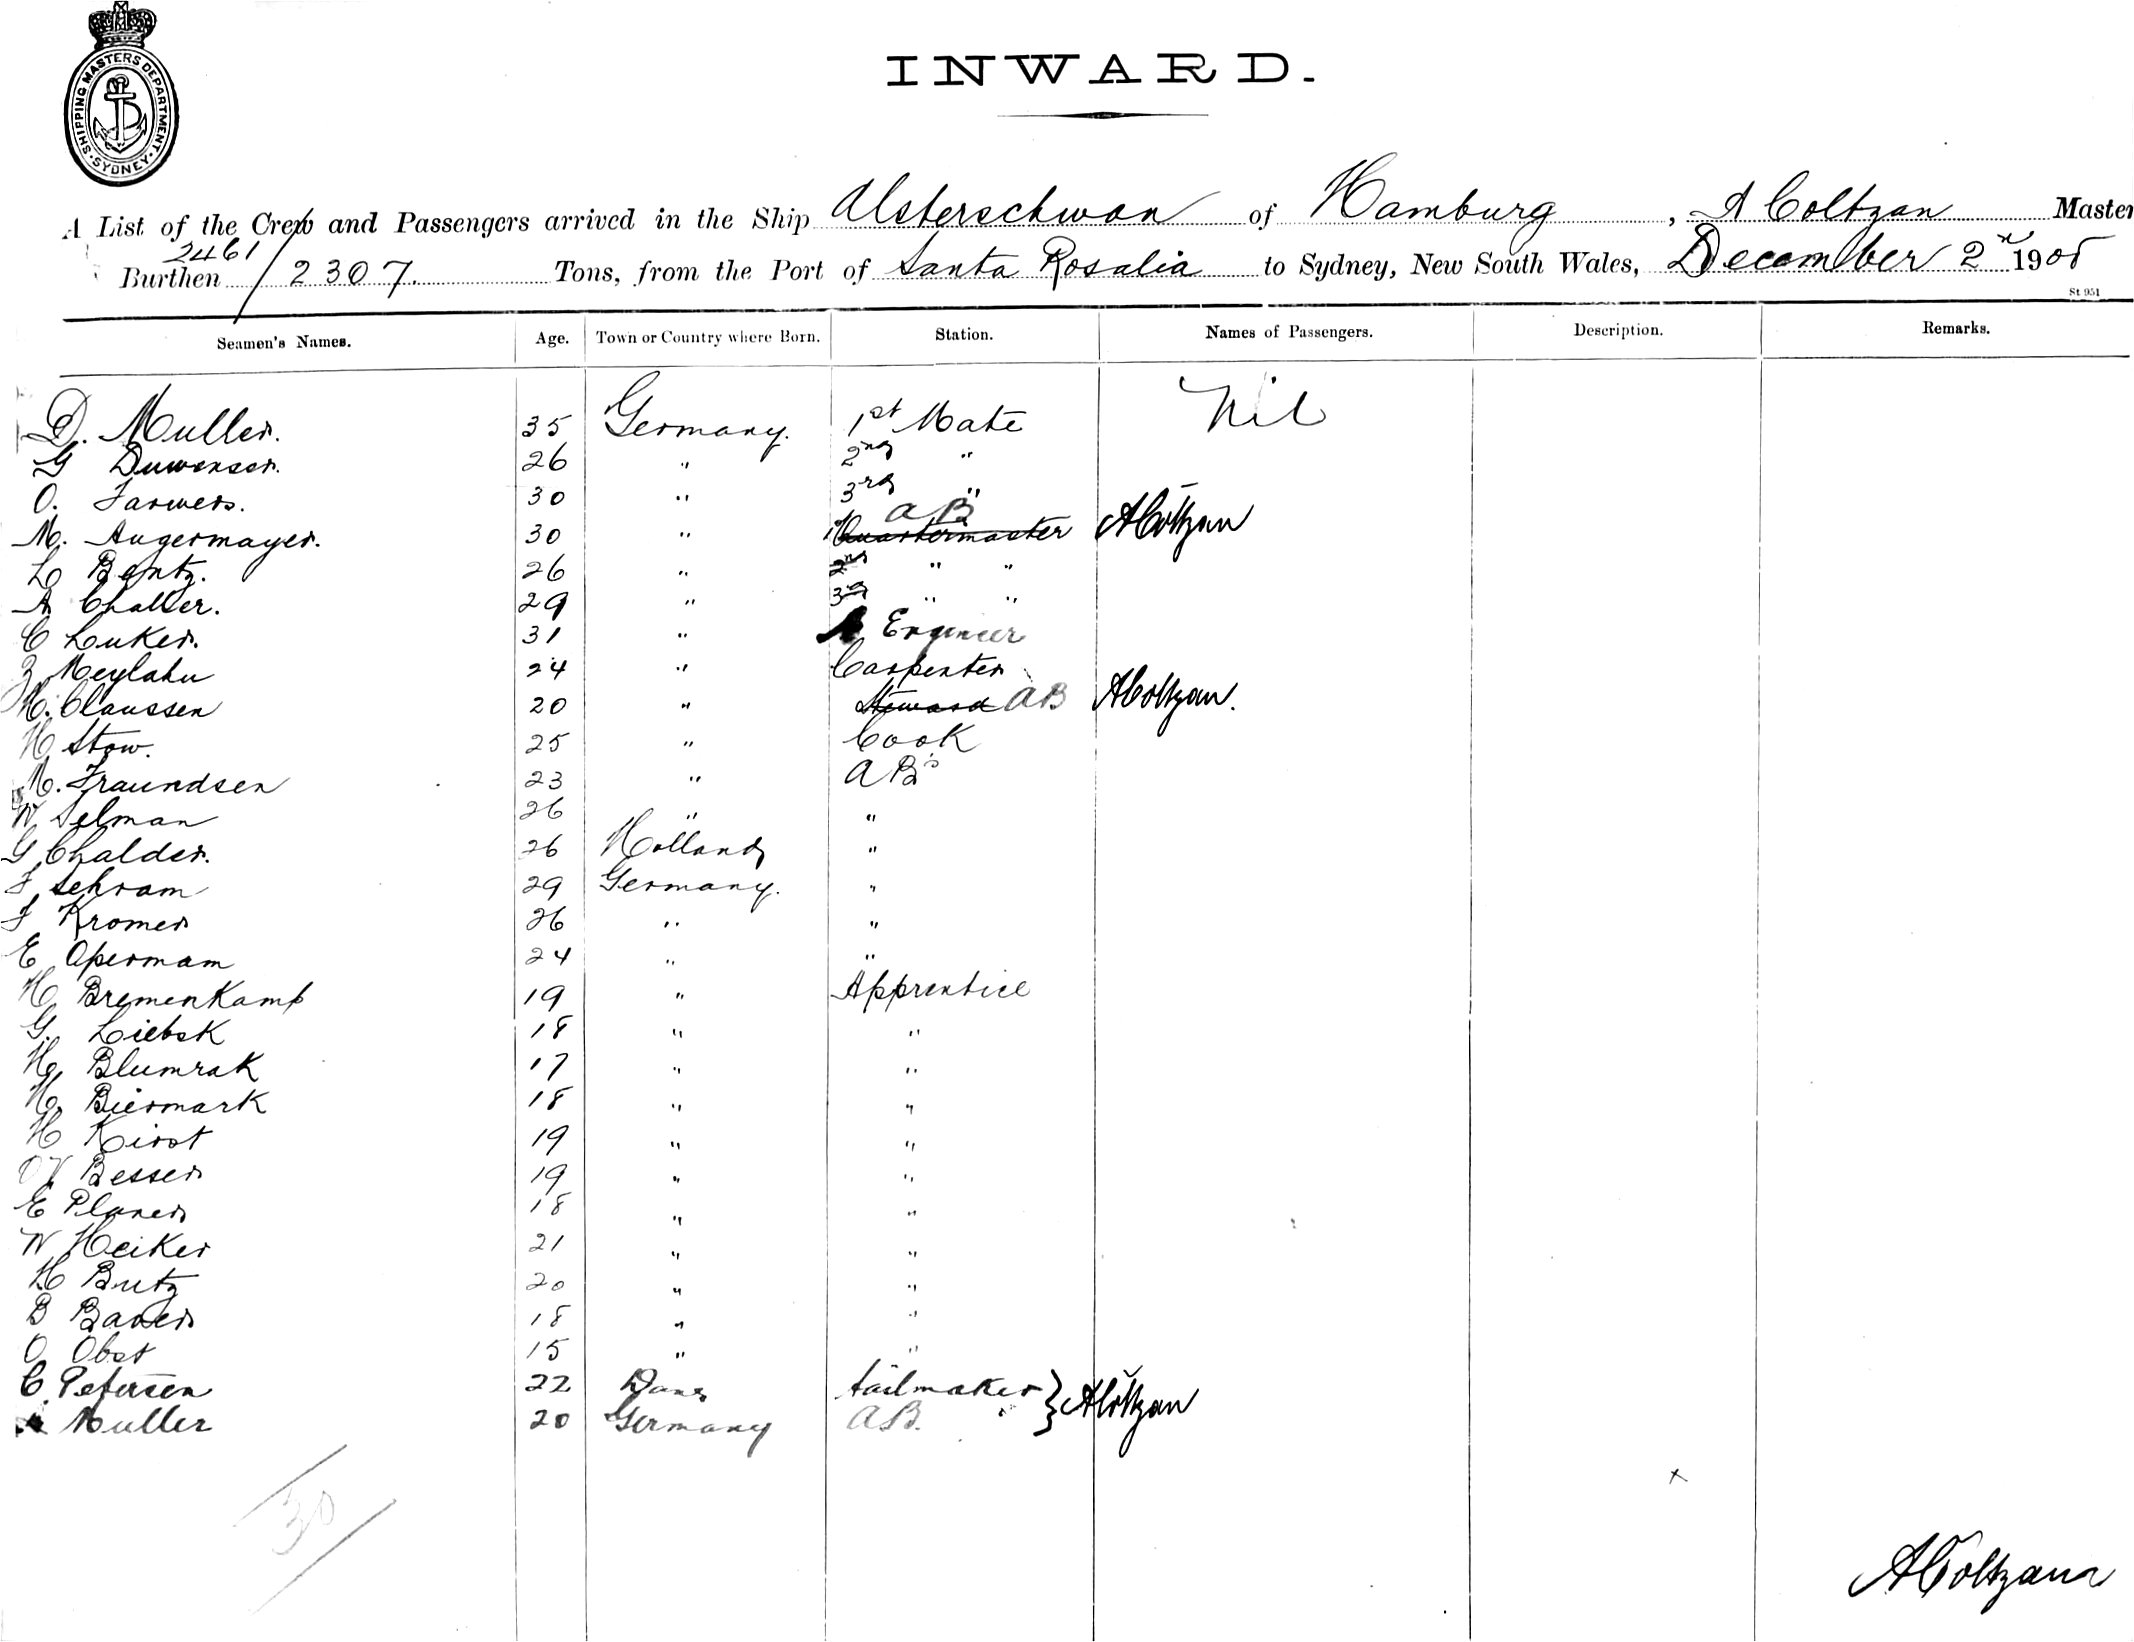 SHIPPING MASTERS DEPARTMENT · SYDNEY ·
INWARD.
A List of the Crew and Passengers arrived in the Ship Alsterschwan of Hamburg, A Coltzan Master
2461
Burthen / 2307. Tons, from the Port of Santa Rosalia to Sydney, New South Wales, December 2nd 1905
St 951
Seamen's Names. Age. Town or Country where Born. Station. Names of Passengers. Description. Remarks.
D. Muller. 35 Germany. 1st Mate Nil
G Duwenser. 26 " 2nd "
O. Farwers. 30 " 3rd "
AB
M. Augermayer. 30 " Quartermaster A Coltzan
L Bentz. 26 " 2nd " "
A Challer. 29 " 3rd " "
C Luker. 31 " Engineer
Meylahn 24 " Carpenter
H. Claussen 20 " Steward AB A Coltzan.
H Stow. 25 " Cook
M. Fraundsen 23 " AB's
W Selman 26 " "
G Chalder. 26 Holland "
F Schram 29 Germany. "
F Kromer 26 " "
E Opermam 24 " "
H Bremenkamp 19 " Apprentice
G. Liebsk 18 " "
H. Blumrak 17 " "
H. Biermark 18 " "
H Kirst 19 " "
Besser 19 " "
E Planer 18 " "
W Heiker 21 " "
H Butz 20 " "
B Bauer 18 " "
O Obst 15 " "
C. Petersen 22 Dane Sailmaker } A Coltzan
Muller 20 Germany AB.
30
x
A Coltzann